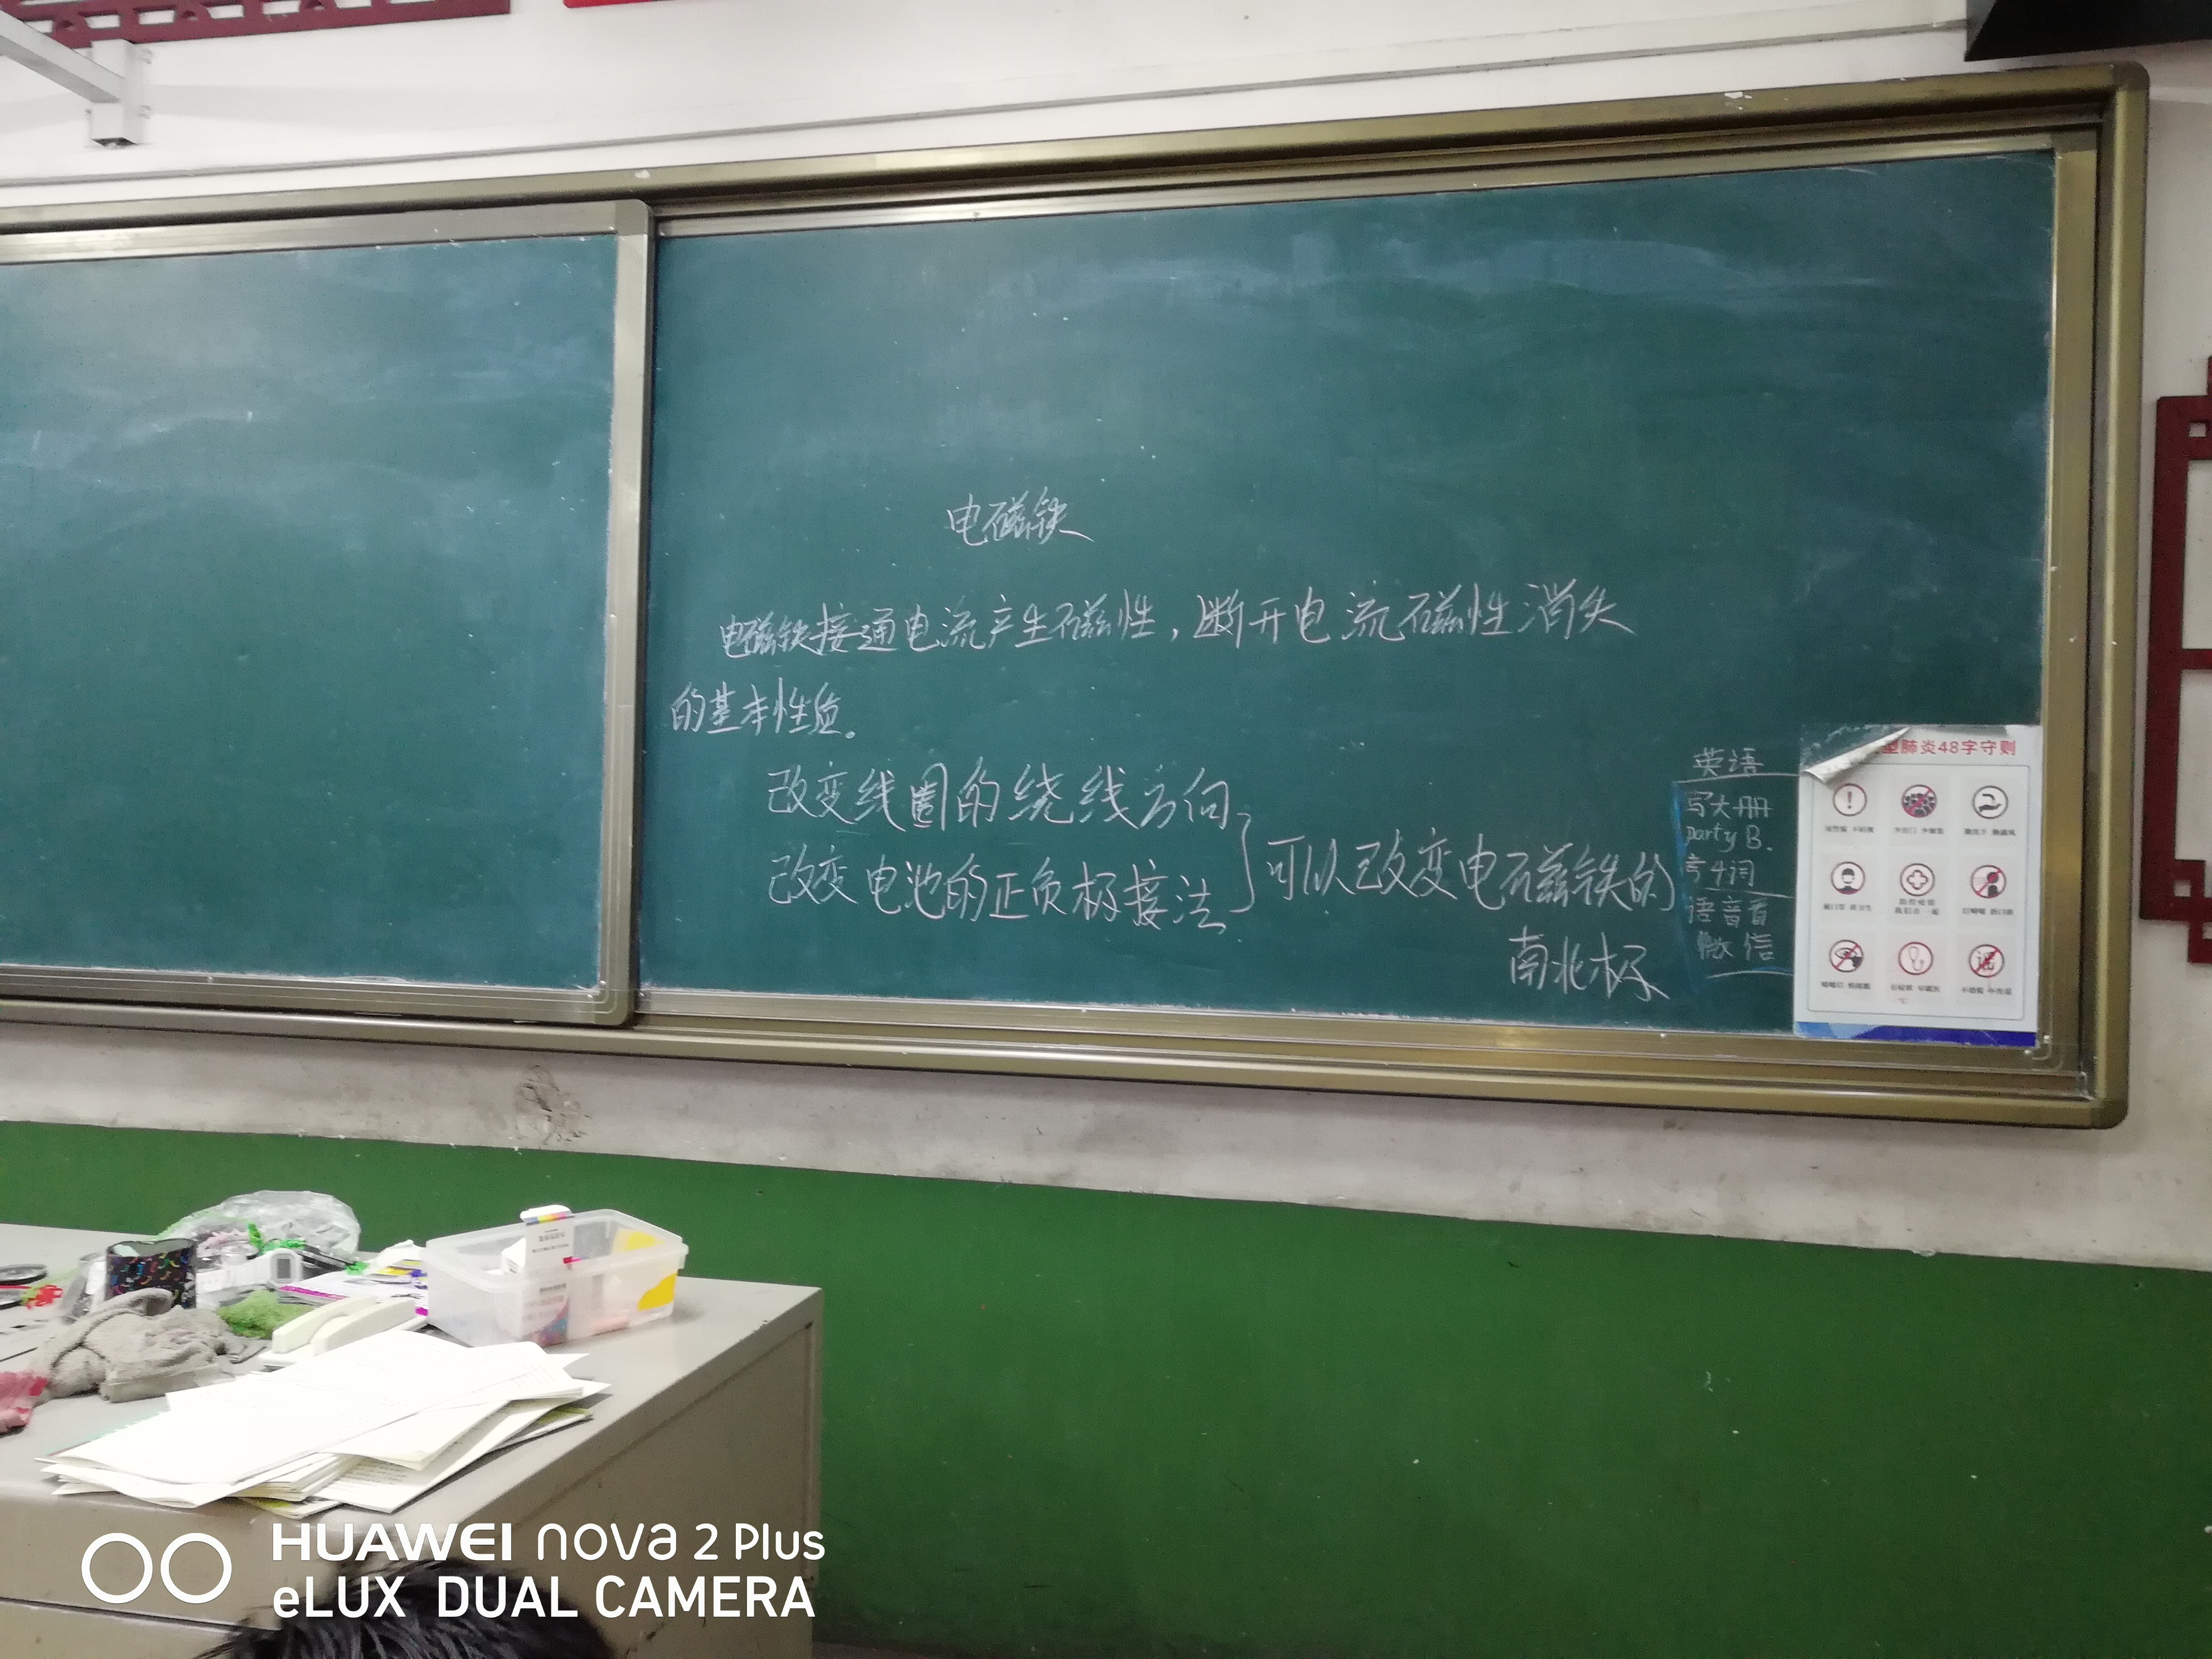 电磁铁
电磁铁接通电流产生磁性，断开电流磁性消失
的基本性质。
改变线圈的绕线方向
改变电池的正负极接法
可以改变电磁铁的
南北极
英语
写大册
party B.
考4词
语音看
微信
型肺炎48字守则
HUAWEI nova 2 Plus
eLUX DUAL CAMERA